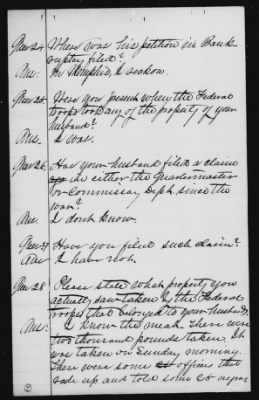 Ques 24. Where was his petition in Bank-
ruptcy filed?
Ans: In Memphis, I reckon.
Ques 25. Were you present when the Federal
troops took any of the property of your
husband?
Ans. I was.
Ques 26. Has your husband filed a claim
in either the Quartermaster
or Commissary Dept. since the
war?
Ans. I dont know.
Ques 27 Have you filed such claim?
Ans I have not.
Ques 28. Please state what property you
actually saw taken by the Federal
troops that belonged to your husband.
Ans: I know the meat. There were
two thousand pounds taken. It
was taken on Sunday morning.
There were some officers that
rode up and told some 60 negroes